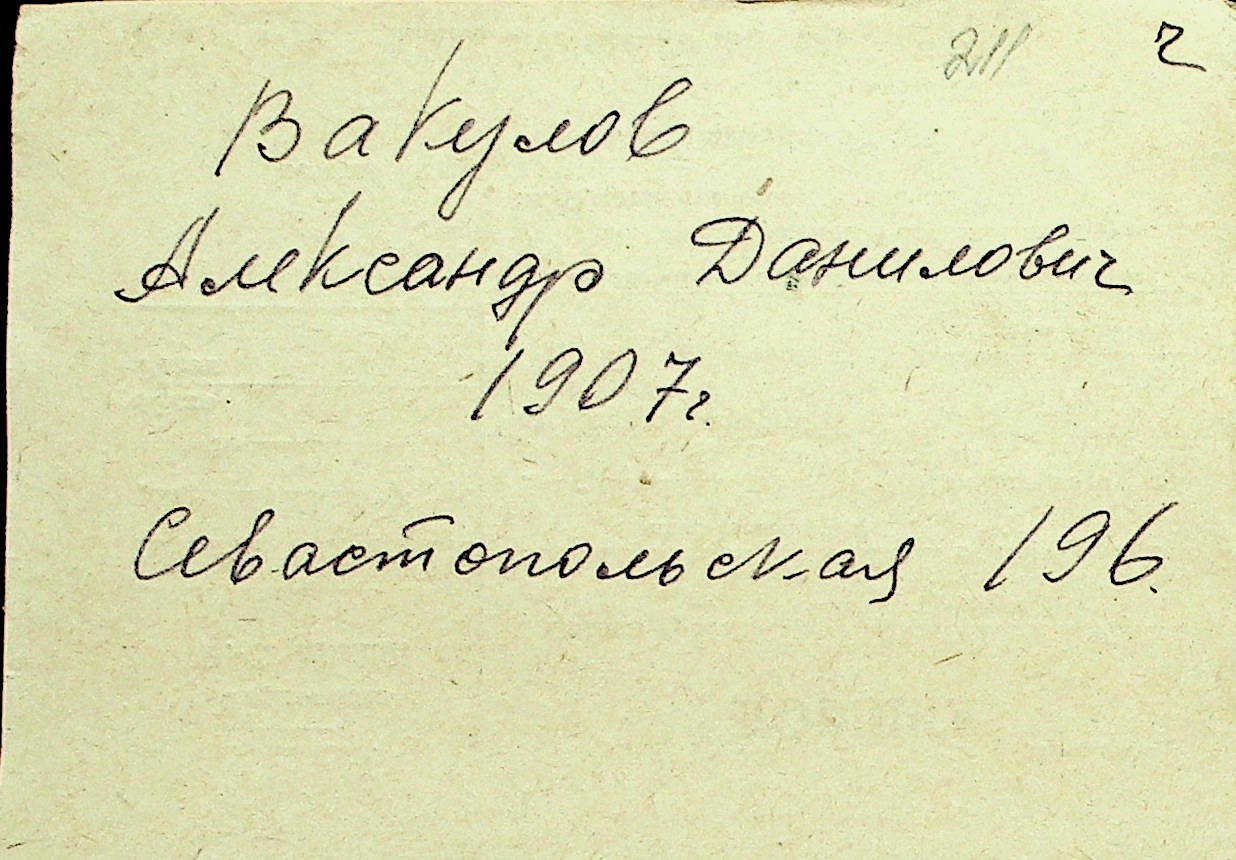 211 ч
Вакулов
Александр Данилович
1907г.
Севастопольская 196.